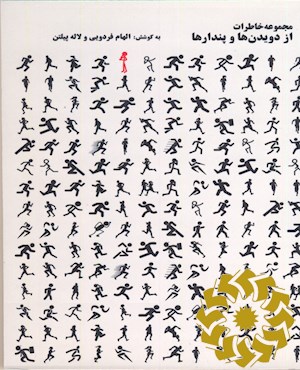 مجموعه خاطرات
از دویدن‌ها و پندارها
به کوشش: الهام فردویی و لاله پیلتن